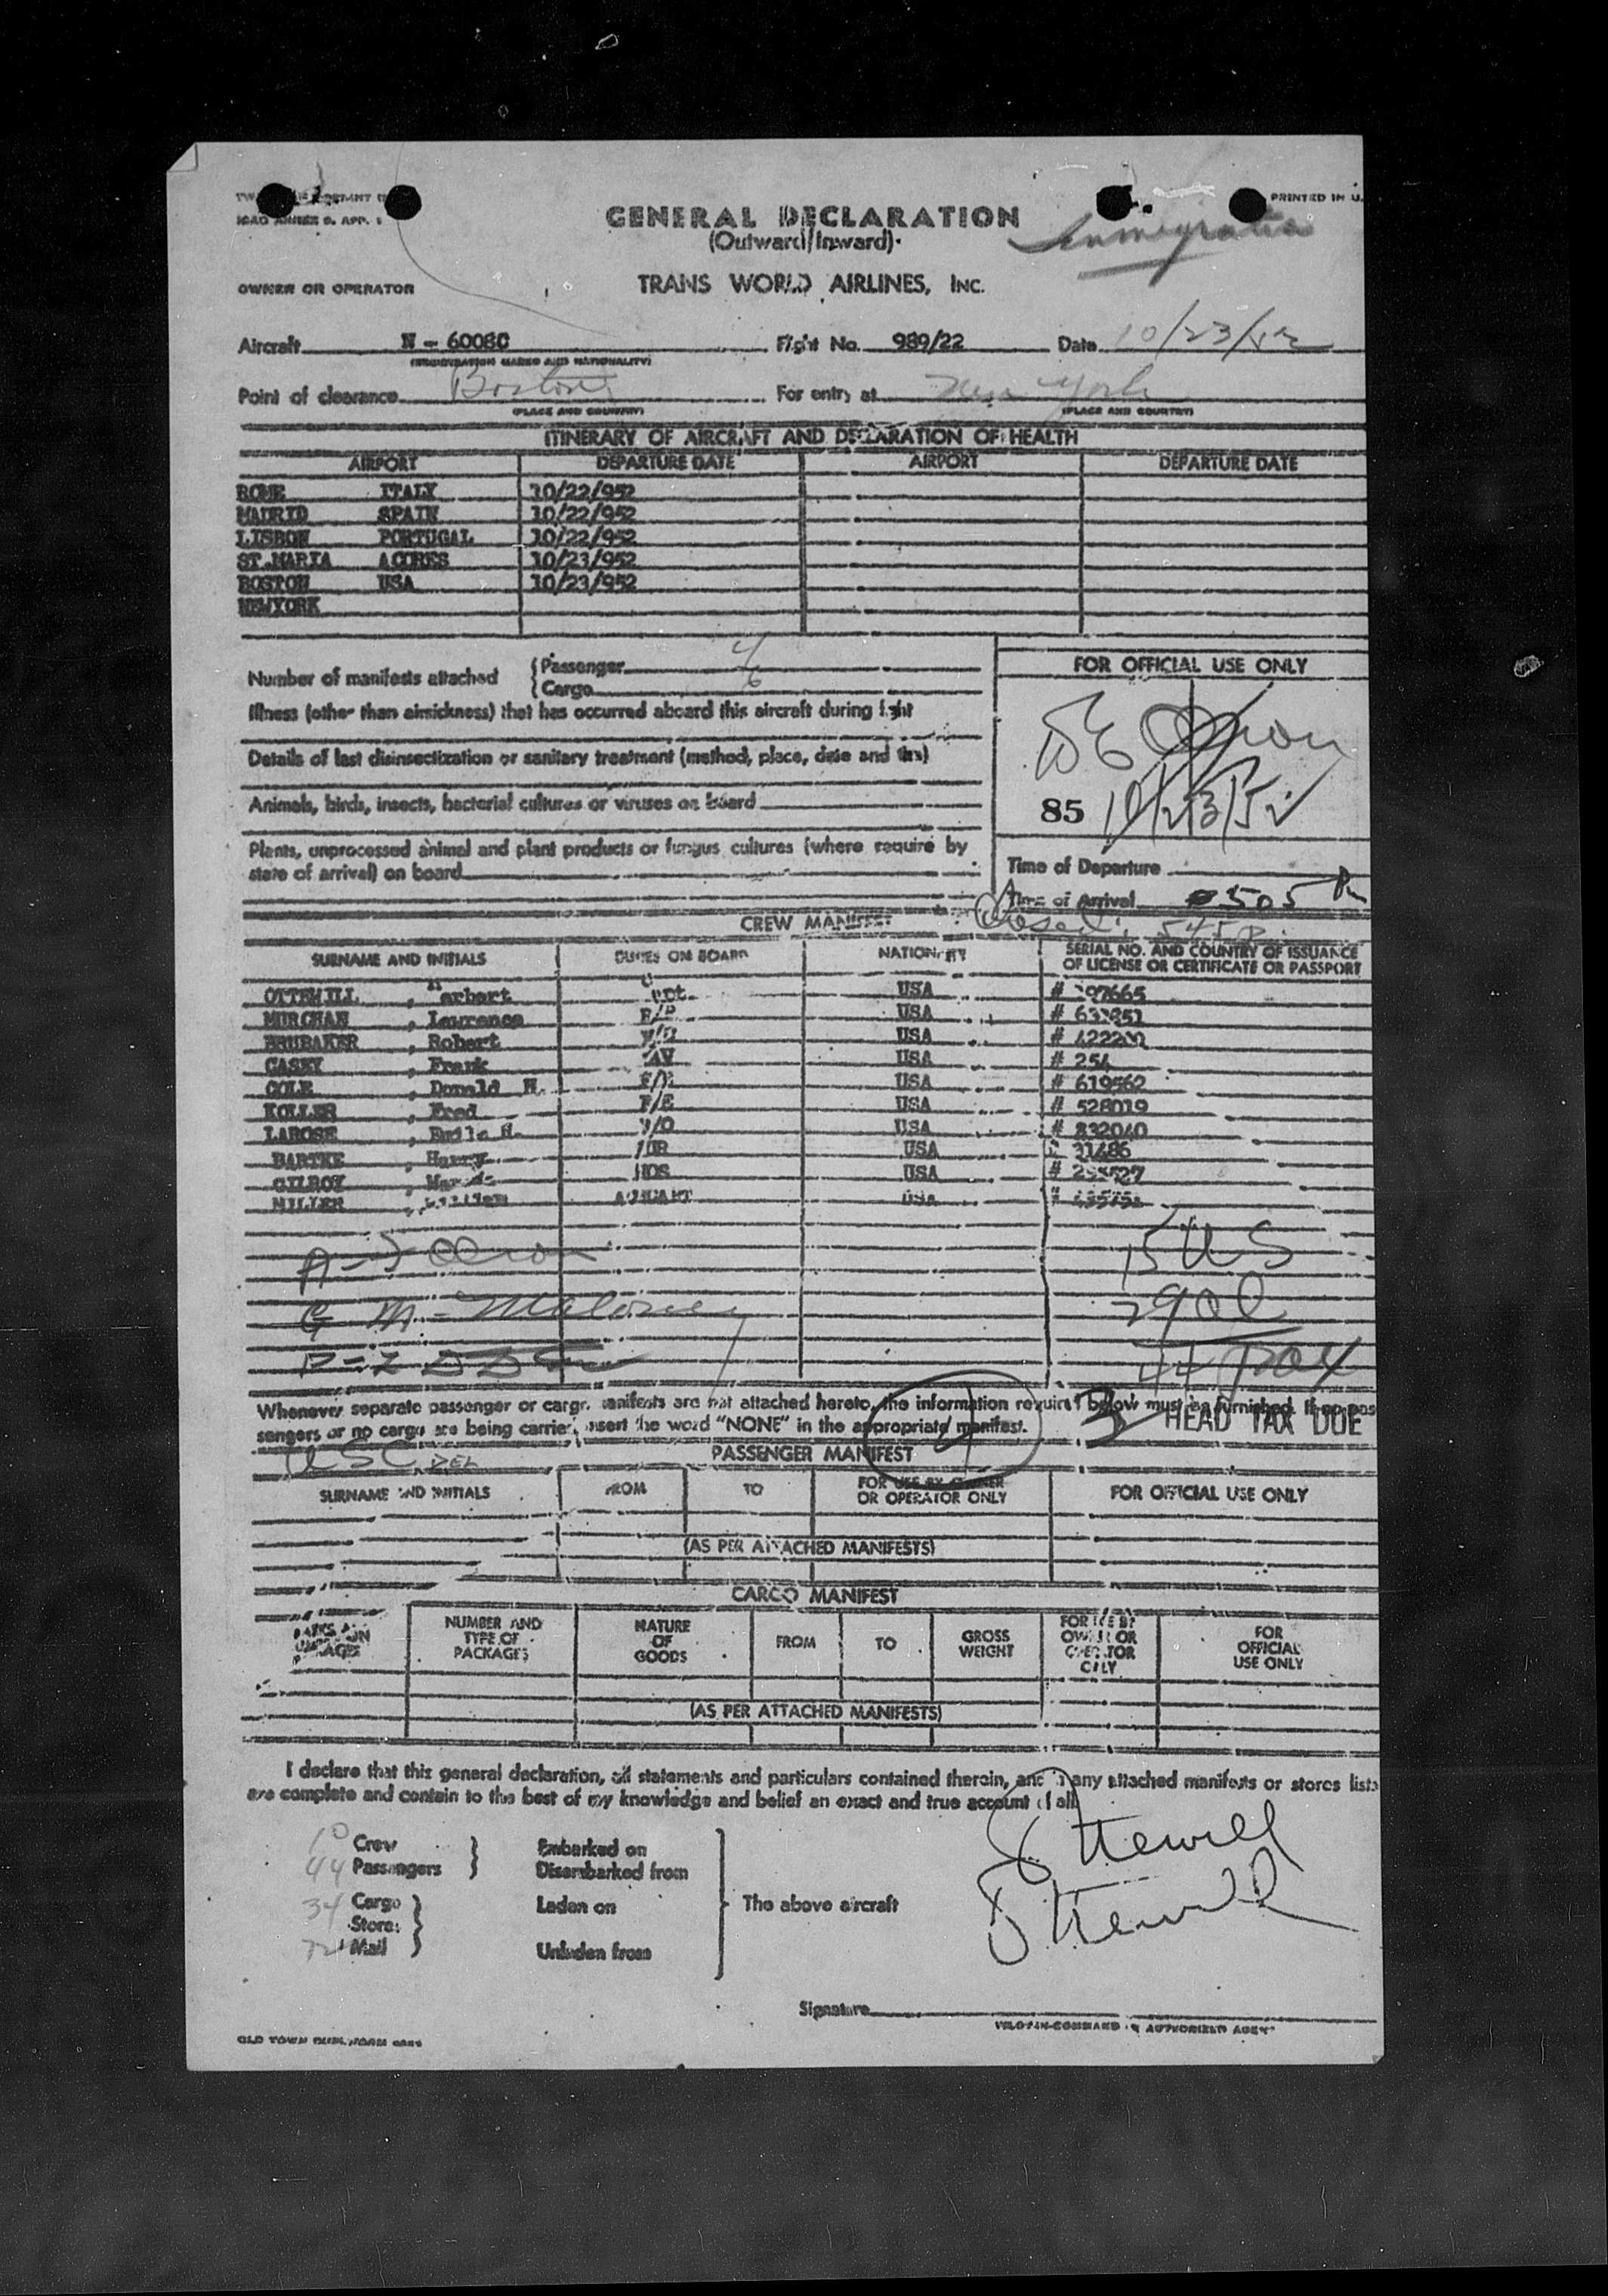 PRINTED IN U.
ICAO ANNEX 9. APP. 1
GENERAL DECLARATION
(Outward/Inward)
Immigration
OWNER OR OPERATOR
TRANS WORLD AIRLINES, INC.
Aircraft N - 6008C Flight No. 989/22 Date 10/23/52
(REGISTRATION MARKS AND NATIONALITY)
Point of clearance Boston For entry at New York
(PLACE AND COUNTRY) (PLACE AND COUNTRY)
ITINERARY OF AIRCRAFT AND DECLARATION OF HEALTH
AIRPORT DEPARTURE DATE AIRPORT DEPARTURE DATE
ROME ITALY 10/22/952
MADRID SPAIN 10/22/952
LISBON PORTUGAL 10/22/952
ST.MARIA ACORES 10/23/952
BOSTON USA 10/23/952
NEWYORK
Number of manifests attached { Passenger 4
{ Cargo 6
Illness (other than airsickness) that has occurred aboard this aircraft during flight
Details of last disinsectization or sanitary treatment (method, place, date and time)
Animals, birds, insects, bacterial cultures or viruses on board
Plants, unprocessed animal and plant products or fungus cultures (where require by
state of arrival) on board
FOR OFFICIAL USE ONLY
85 10/23/52
Time of Departure
Time of Arrival 505 Pm
Closed: 545 P.
CREW MANIFEST
SURNAME AND INITIALS DUTIES ON BOARD NATIONALITY SERIAL NO. AND COUNTRY OF ISSUANCE
OF LICENSE OR CERTIFICATE OR PASSPORT
OTTEWILL , Herbert Cpt. USA
MURCHAN , Lawrence USA
BRUBAKER , Robert USA
CASEY , Frank USA # 254
COLE , Donald H. USA # 619562
KOLLER , Fred F/E USA # 528019
LAROSE , Emile H. USA # 832040
BARTKE , Harry USA
GILROY HOS USA
MILLER , Lillian USA
Maloney
15 US
29 al
44 Pax
Whenever separate passenger or cargo manifests are not attached hereto, the information required below must be furnished. If no pas-
sengers or no cargo are being carried, insert the word "NONE" in the appropriate manifest.
3 HEAD TAX DUE
USC
PASSENGER MANIFEST
SURNAME AND INITIALS FROM TO FOR USE BY OWNER
OR OPERATOR ONLY FOR OFFICIAL USE ONLY
(AS PER ATTACHED MANIFESTS)
CARGO MANIFEST
MARKS AND NUMBERS ON PACKAGES NUMBER AND TYPE OF PACKAGES NATURE OF GOODS FROM TO GROSS WEIGHT FOR USE BY OWNER OR OPERATOR ONLY FOR OFFICIAL USE ONLY
(AS PER ATTACHED MANIFESTS)
I declare that this general declaration, all statements and particulars contained therein, and in any attached manifests or stores lists
are complete and contain to the best of my knowledge and belief an exact and true account of all
10 Crew Embarked on
44 Passengers Disembarked from
34 Cargo Laden on The above aircraft
Stores
72 Mail Unladen from
Ottewill
Ottewill
Signature
PILOT-IN-COMMAND OR AUTHORIZED AGENT